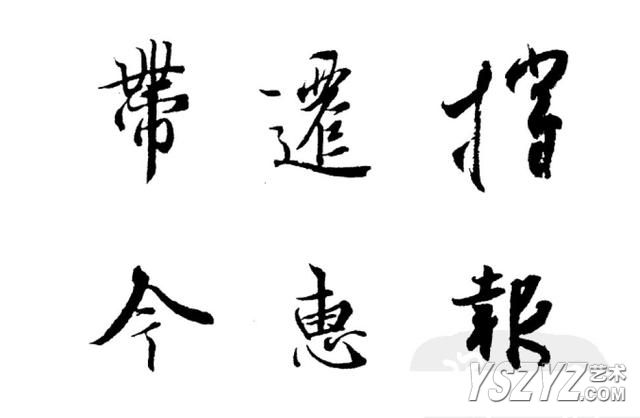 帶 遷
今 惠 報
YSZYZ艺术.COM